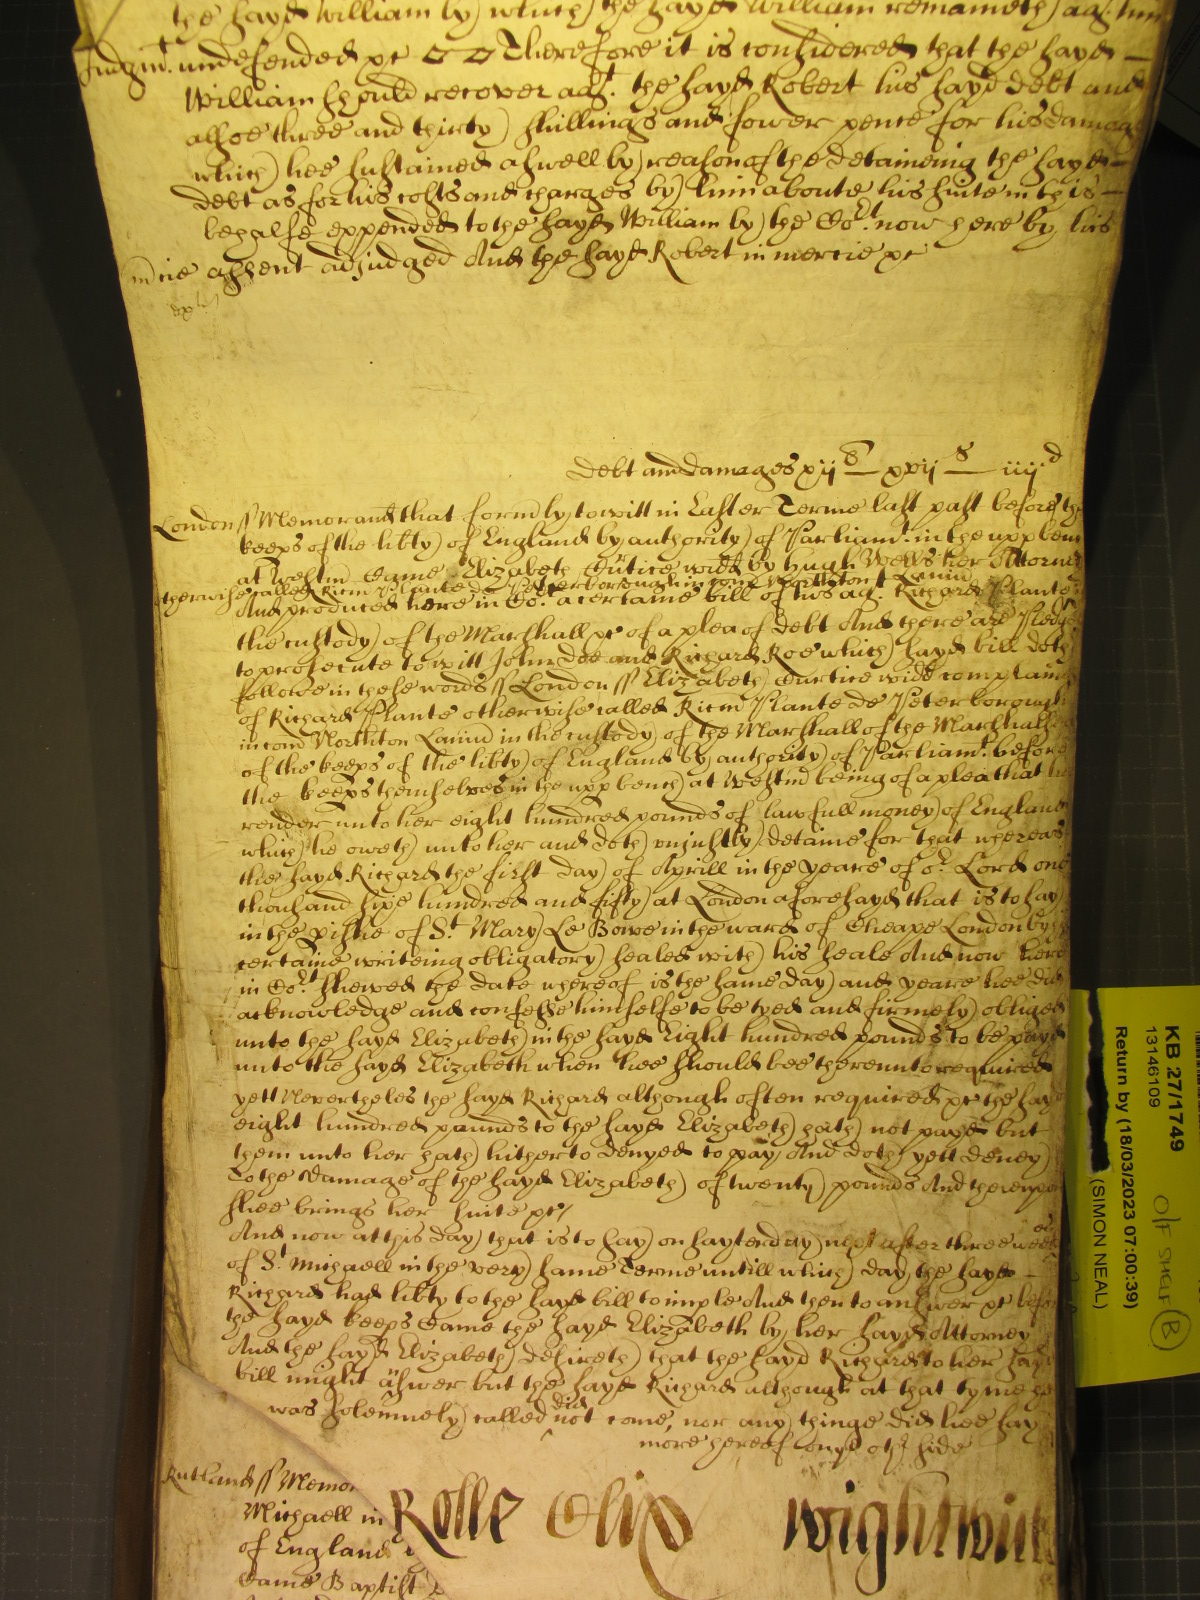 the sayd William by which the sayd William remaineth agt him
Judgmt. undefended &c Therefore it is considered that the sayd
William should recover agt. the sayd Robert his sayd debt and
alsoe three and thirty shillings and fower pence for his damages
which hee sustained aswell by reason of the detaineing the sayd
debt as for his costs and charges by him aboute his suite in this
behalfe expended to the sayd William by the Cort. now here by his
mcie assent adjudged And the sayd Robert in mercie &c
Debt and damages xijs xxijs iiijd
London ss Memorand that formly towitt in Easter Terme last past before the
keeps of the libty of England by authority of Parliamt. in the upp bench
at Westm Came Elizabeth Curtice widd by Hugh Wells her Attorney
otherwise called Ricm Plante de Peterborough in com Northton Lanium
And produced here in Cort. a certaine bill of hers agt. Richard Plante in
the custody of the Marshall &c of a plea of debt And there are Pledges
to prosecute towitt John Doe and Richard Roe which sayd bill doth
followe in these words ss London ss Elizabeth Curtice widd complaines
of Richard Plante otherwise called Ricm Plante de Peterborough
in com Northton Lanium in the custody of the Marshall of the Marshallsea
of the keeps of the libty of England by authority of Parliamt. before
the keeps themselves in the upp bench at Westm being of a plea that hee
render unto her eight hundred pounds of lawfull money of England
which he oweth unto her and doth unjustly detaine for that whereas
the sayd Richard the first day of Aprill in the yeare of or. Lord one
thousand sixe hundred and fifty at London aforesayd that is to say
in the pishe of St. Mary Le Bowe in the ward of Cheape London by his
certaine writeing obligatory sealed with his seale And now here
in Cort. shewed the date whereof is the same day and yeare hee did
acknowledge and confesse himselfe to be tyed and firmely obliged
unto the sayd Elizabeth in the sayd Eight hundred pounds to be payd
unto the sayd Elizabeth when hee should bee thereunto required
yett Nevertheles the sayd Richard although often required &c the sayd
eight hundred pounds to the sayd Elizabeth hath not payd but
them unto her hath hitherto denyed to pay And doth yett deney
To the Damage of the sayd Elizabeth of twenty pounds And thereupon
shee brings her suite &c
And now at this day that is to say on saterday next after three weekes
of St. Michaell in the very same Terme untill which day the sayd
Richard had libty to the sayd bill to imple And then to answer &c before
the sayd keeps Came the sayd Elizabeth by her sayd Attorney
And the sayd Elizabeth desireth that the sayd Richard to her sayd
bill might answer but the sayd Richard although at that tyme he
was solemnely called did not come, nor any thinge did hee say
more hereof on ye othr side
Rutland ss Memor
Michaell in
of England
Came Baptist
Rolle Oliv Wightwick
KB 27/1749
13146109
Return by (18/03/2023 07:00:39)
(SIMON NEAL)
O/F SHELF B